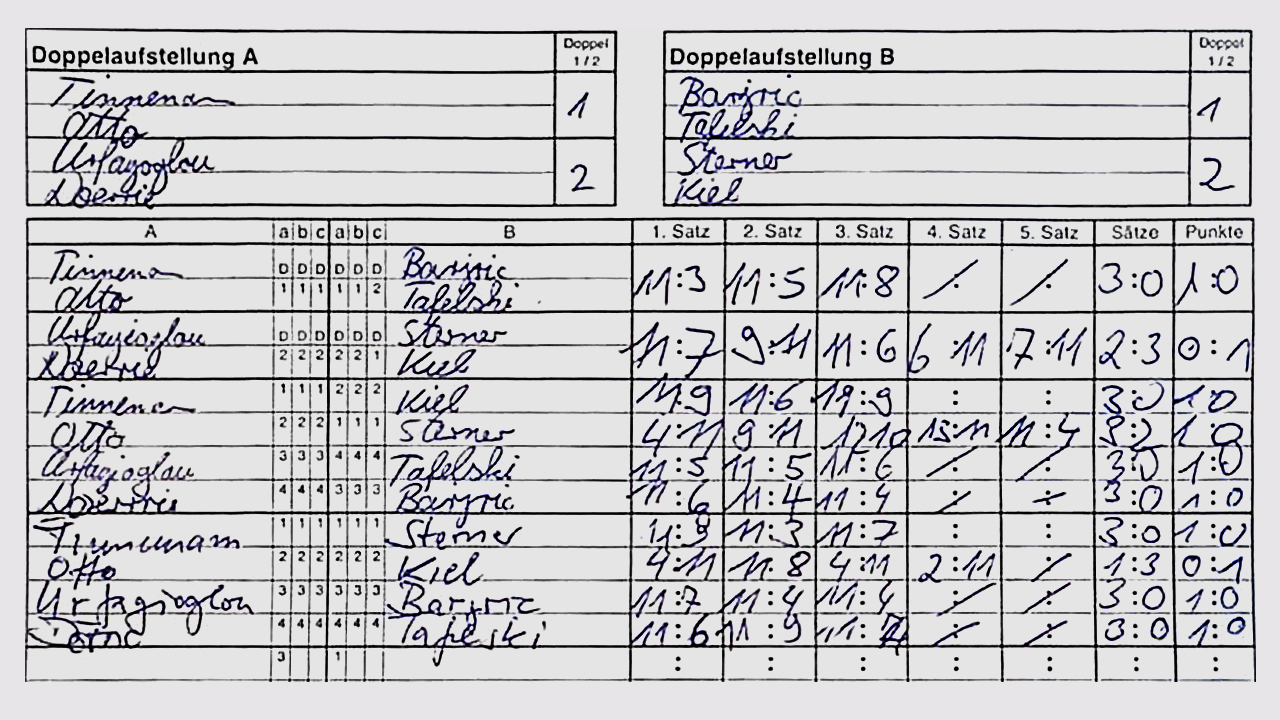 Doppelaufstellung A Doppel 1/2
Tinnenan
Otto 1
Urfagioglou
Doerrie 2
Doppelaufstellung B Doppel 1/2
Barjric
Tafelski 1
Sterner
Kiel 2
A a b c a b c B 1. Satz 2. Satz 3. Satz 4. Satz 5. Satz Sätze Punkte
Tinnenan D D D D D D Barjric
Otto 1 1 1 1 1 2 Tafelski 11:3 11:5 11:8 : : 3:0 1:0
Urfagioglou D D D D D D Sterner
Doerrie 2 2 2 2 2 1 Kiel 11:7 9:11 11:6 6:11 7:11 2:3 0:1
Tinnenan 1 1 1 2 2 2 Kiel 11:9 11:6 : : 3:0 1:0
Otto 2 2 2 1 1 1 Sterner 4:11 9:11 12:10 13:11 11:4 3:2 1:0
Urfagioglou 3 3 3 4 4 4 Tafelski 11:5 11:5 11:6 : : 3:0 1:0
Doerrie 4 4 4 3 3 3 Barjric 11:6 11:4 11:4 : : 3:0 1:0
1 1 1 1 1 1 Sterner 11:3 11:7 : : 3:0 1:0
Otto 2 2 2 2 2 2 Kiel 4:11 11:8 4:11 2:11 : 1:3 0:1
Urfagioglou 3 3 3 3 3 3 Barjric 11:7 11:4 11:4 : : 3:0 1:0
4 4 4 4 4 4 Tafelski 11:6 11:9 : : 3:0 1:0
3 1 : : : : : : :